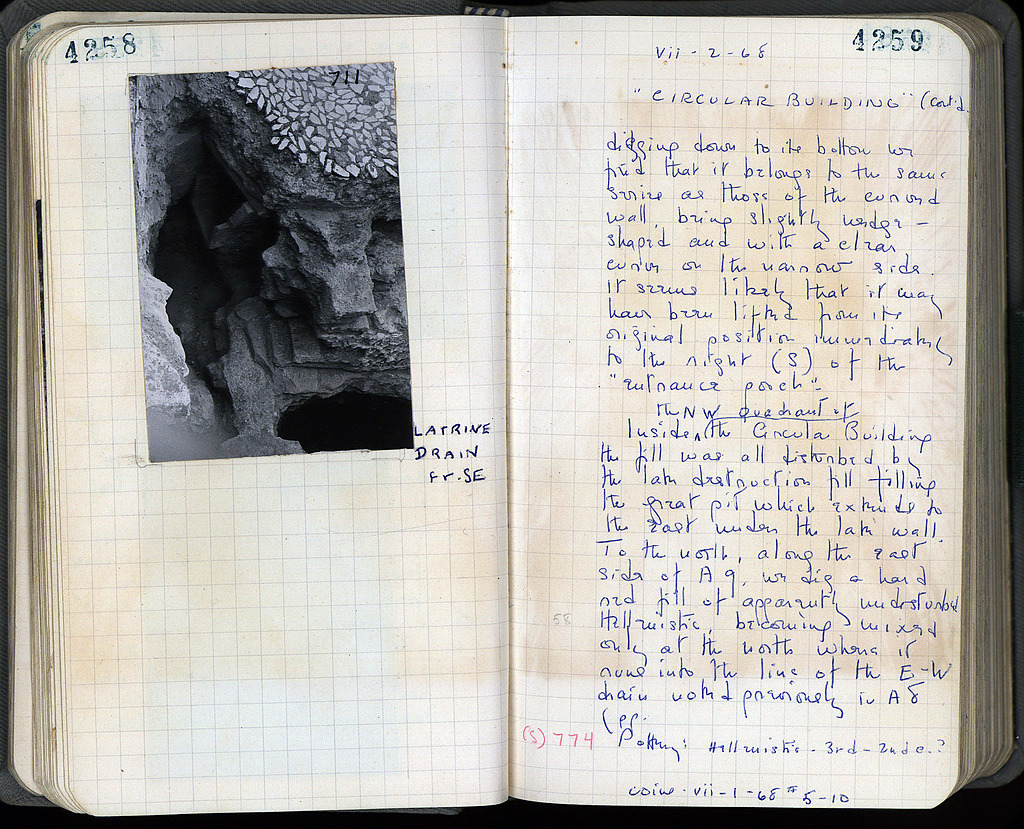 4258
711
LATRINE
DRAIN
fr. SE
4259
vii - 2 - 68
"CIRCULAR BUILDING" (cont'd.
digging down to its bottom we
find that it belongs to the same
series as those of the curved
wall, being slightly wedge-
shaped and with a clear
curve on the narrow side.
It seems likely that it may
have been lifted from its
original position immediately
to the right (S) of the
"entrance porch".
the NW quadrant of
Inside the Circular Building
the fill was all disturbed by
the late destruction fill filling
the great pit which extends to
the east under the late wall.
To the north, along the east
side of A 9, we dig a hard
red fill of apparently undisturbed
Hellenistic, becoming mixed
only at the north where it
runs into the line of the E-W
drain noted previously in A 8
(pp.
58
(S) 774
Pottery: Hellenistic - 3rd - 2nd c.?
coins - vii - 1 - 68 # 5-10